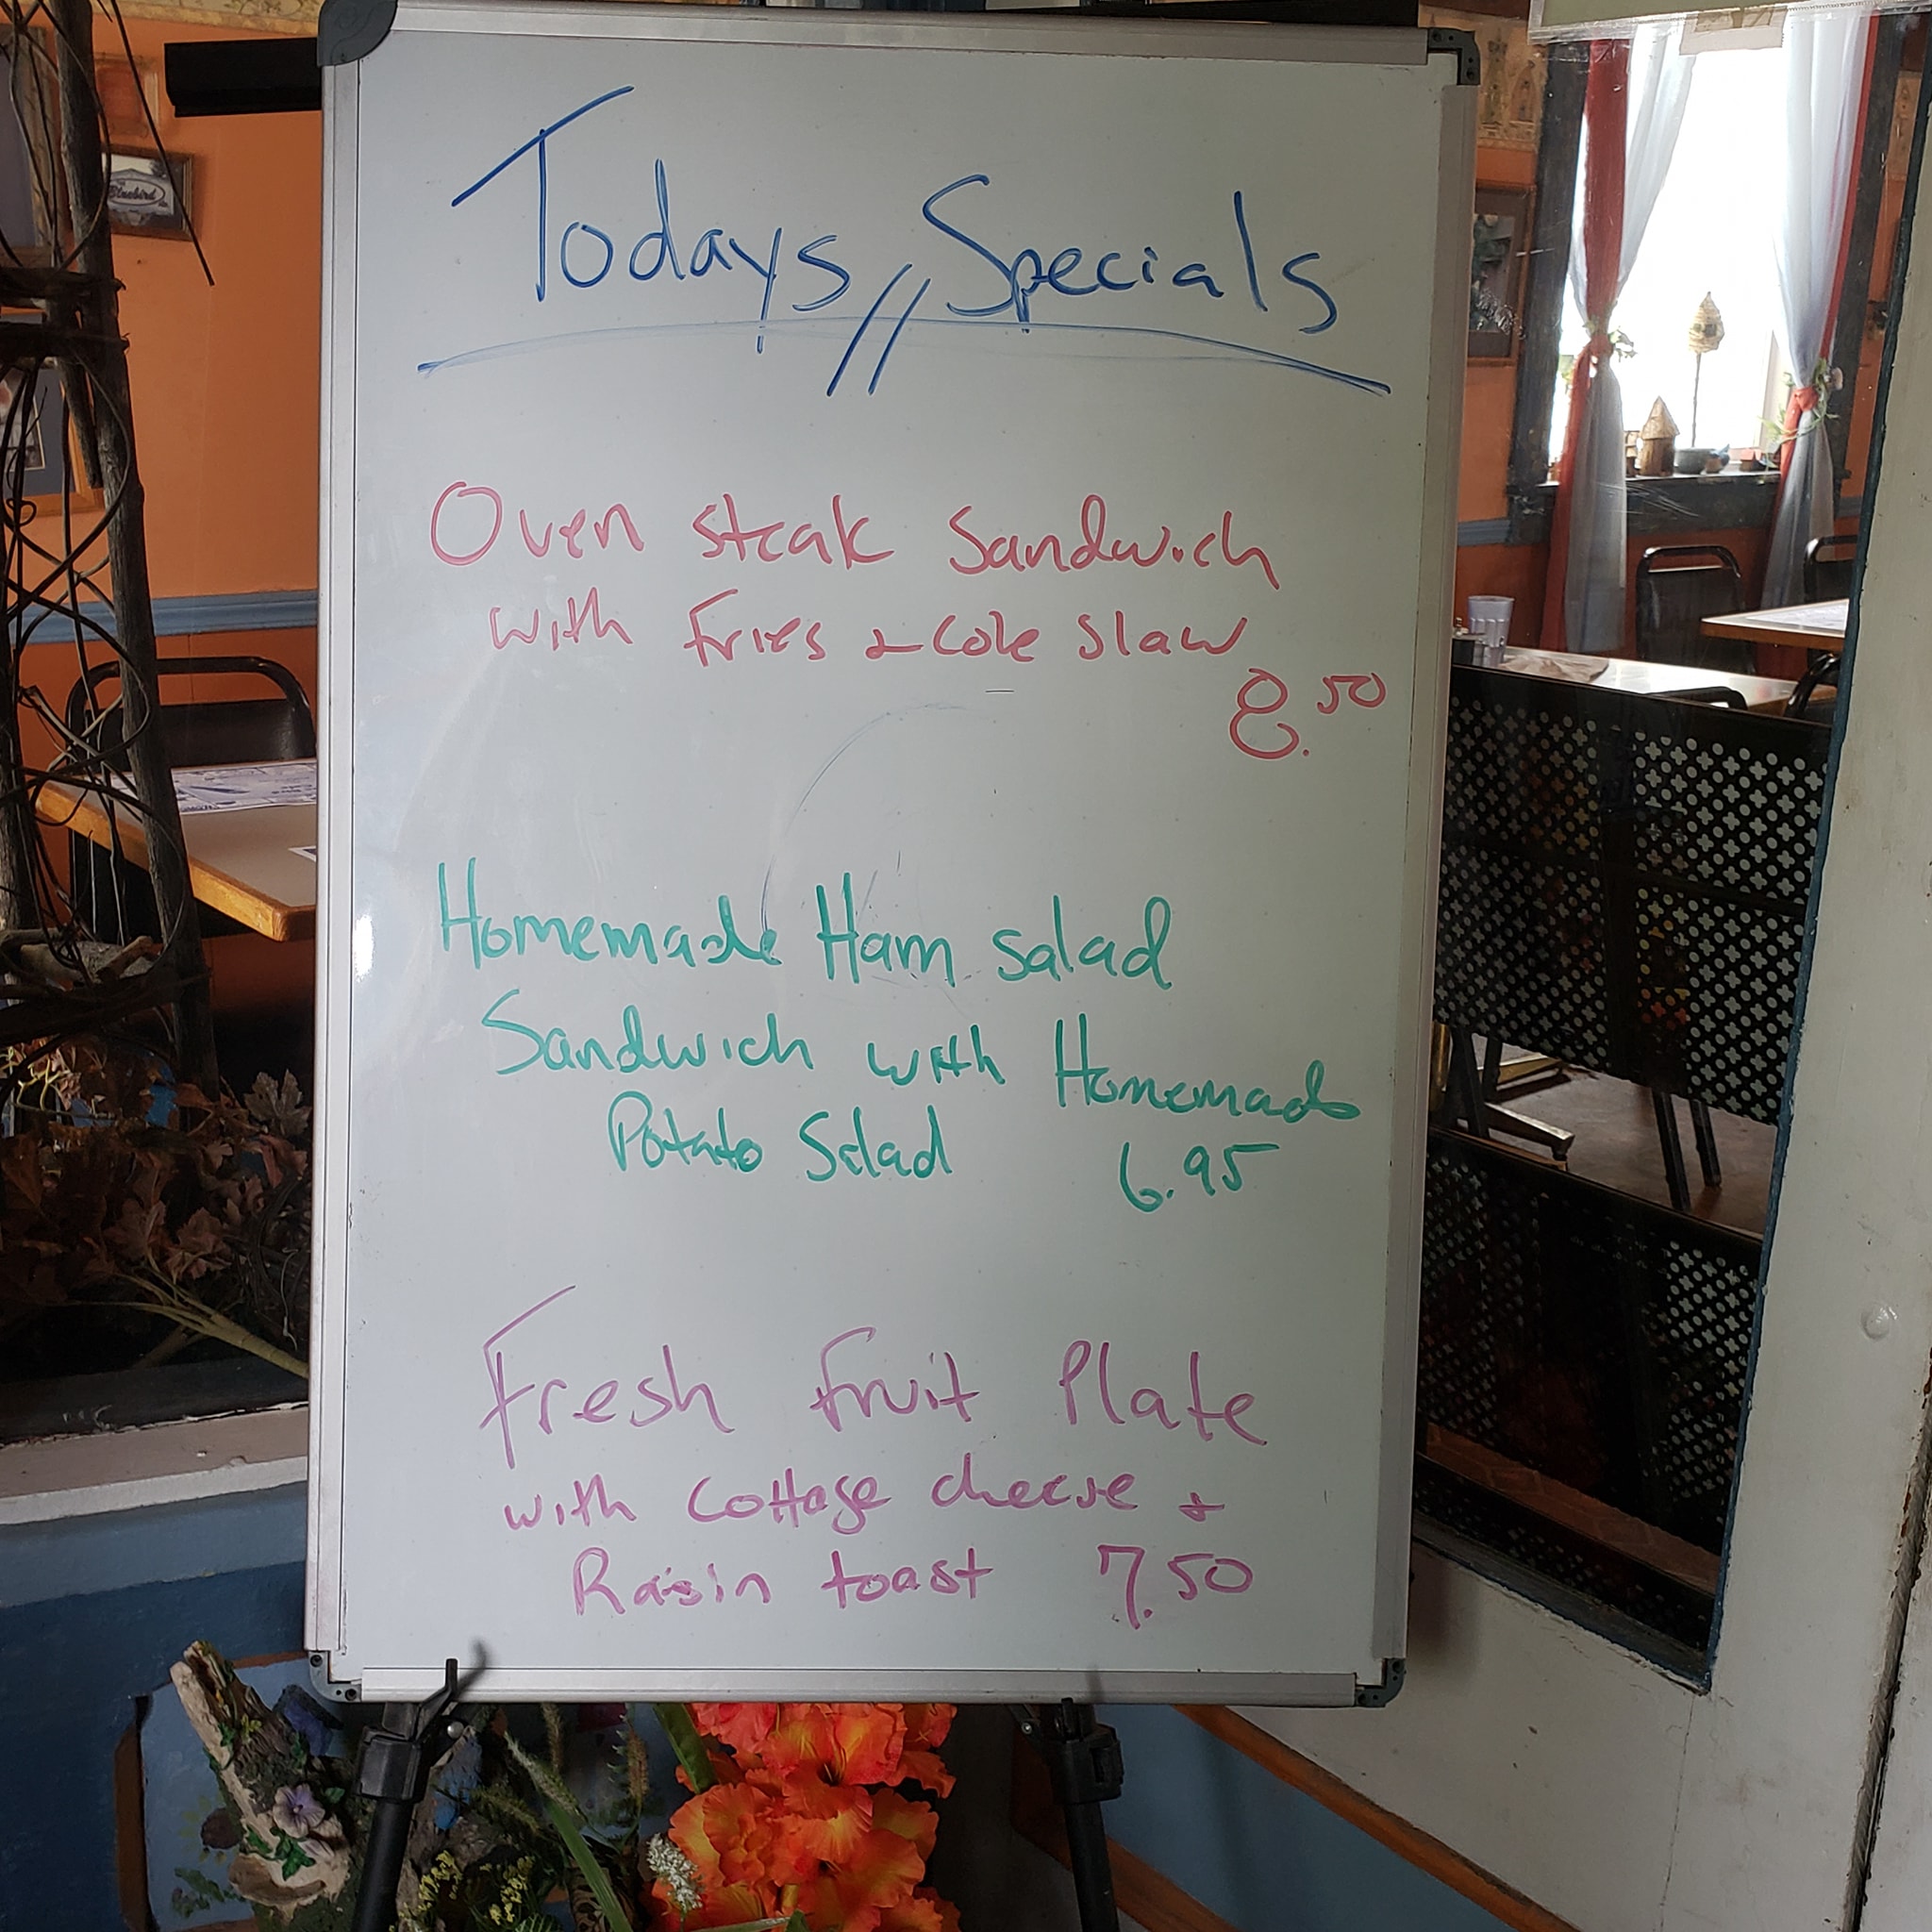 Todays Specials
Oven steak Sandwich
with Fries & Cole slaw
8.50
Homemade Ham salad
Sandwich with Homemade
Potato Salad 6.95
Fresh Fruit Plate
with Cottage cheese &
Raisin toast 7.50
Bluebird